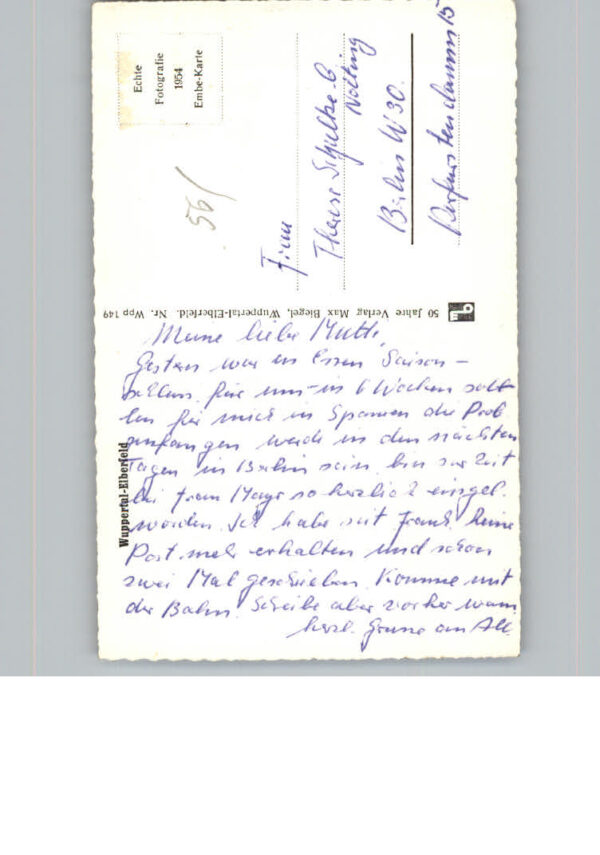 Echte
Fotografie
1954
Embe-Karte
56/
Frau
Therese Schultze-G
Nolting
Berlin W 30.
15
50 Jahre Verlag Max Biegel, Wuppertal-Elberfeld. Nr. Wpp 149
Wuppertal-Elberfeld
Meine liebe Mutti,
Gestern war in Essen Saison-
schluss für uns in 6 Wochen soll-
ten für mich in Spanien die Prob.
anfangen werde in den nächsten
Tagen in Berlin sein, bin zur Zeit
bei Frau Mayr so herzlich eingel.
worden. Ich habe seit Frankr. keine
Post mehr erhalten und schon
zwei Mal geschrieben. Komme mit
der Bahn. Schreibe aber vorher wann
herzl. Grüsse an All.